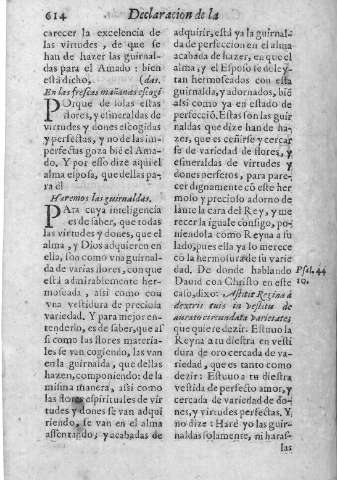 614 Declaracion de la
carecer la excelencia de
las virtudes, de que se
han de hazer las guirnal-
das para el Amado: bien
está dicho. (das.
En las frescas mañanas escogi
POrque de solas estas
flores, y esmeraldas de
virtudes y dones escogidas
y perfectas, y no de las im-
perfectas goza bié el Ama-
do, Y por esso dize aqui el
alma esposa, que dellas pa-
ra èl
Haremos las guirnaldas.
PAra cuya inteligencia
es de saber, que todas
las virtudes y dones, que el
alma, y Dios adquieren en
ella, son como vna guirnal-
da de varias flores, con que
está admirablemente her-
moseada, assi como con
vna vestidura de preciosa
variedad. Y para mejor en-
tenderlo, es de saber, que as
si como las flores materia-
les se van cogiendo, las van
en la guirnalda, que dellas
hazen, componiendo: de la
misma manera, assi como
las flores espirituales de vir
tudes y dones se van adqui
riendo, se van en el alma
assentando; y acabadas de
adquirir, está ya la guirnal-
da de perfeccion en el alma
acabada de hazer, en que el
alma, y el Esposo se deley-
tan hermoseados con esta
guirnalda, y adornados, biē
assi como ya en estado de
perfecciō. Estas son las guir
naldas que dize han de ha-
zer, que es ceñirse y cercar
se de variedad de flores, y
esmeraldas de virtudes y
dones perfetos, para pare-
cer dignamente cō este her
moso y precioso adorno de
lante la cara del Rey, y me
recer la iguale consigo, po-
niendola como Reyna a su
lado, pues ella ya lo merece
cō la hermosura de su varie
dad. De donde hablando Psal. 44
Dauid con Christo en este 10.
caso, dixo: Astitit Regina à
dextris tuis in vestitu de
aurato circundata varietate:
que quiere dezir: Estuuo la
Reyna a tu diestra en vesti
dura de oro cercada de va-
riedad, que es tanto como
dezir: Estuuo a tu diestra
vestida de perfecto amor, y
cercada de variedad de do-
nes, y virtudes perfectas. Y
no dize: Harè yo las guir-
naldas solamente, ni haras-
las